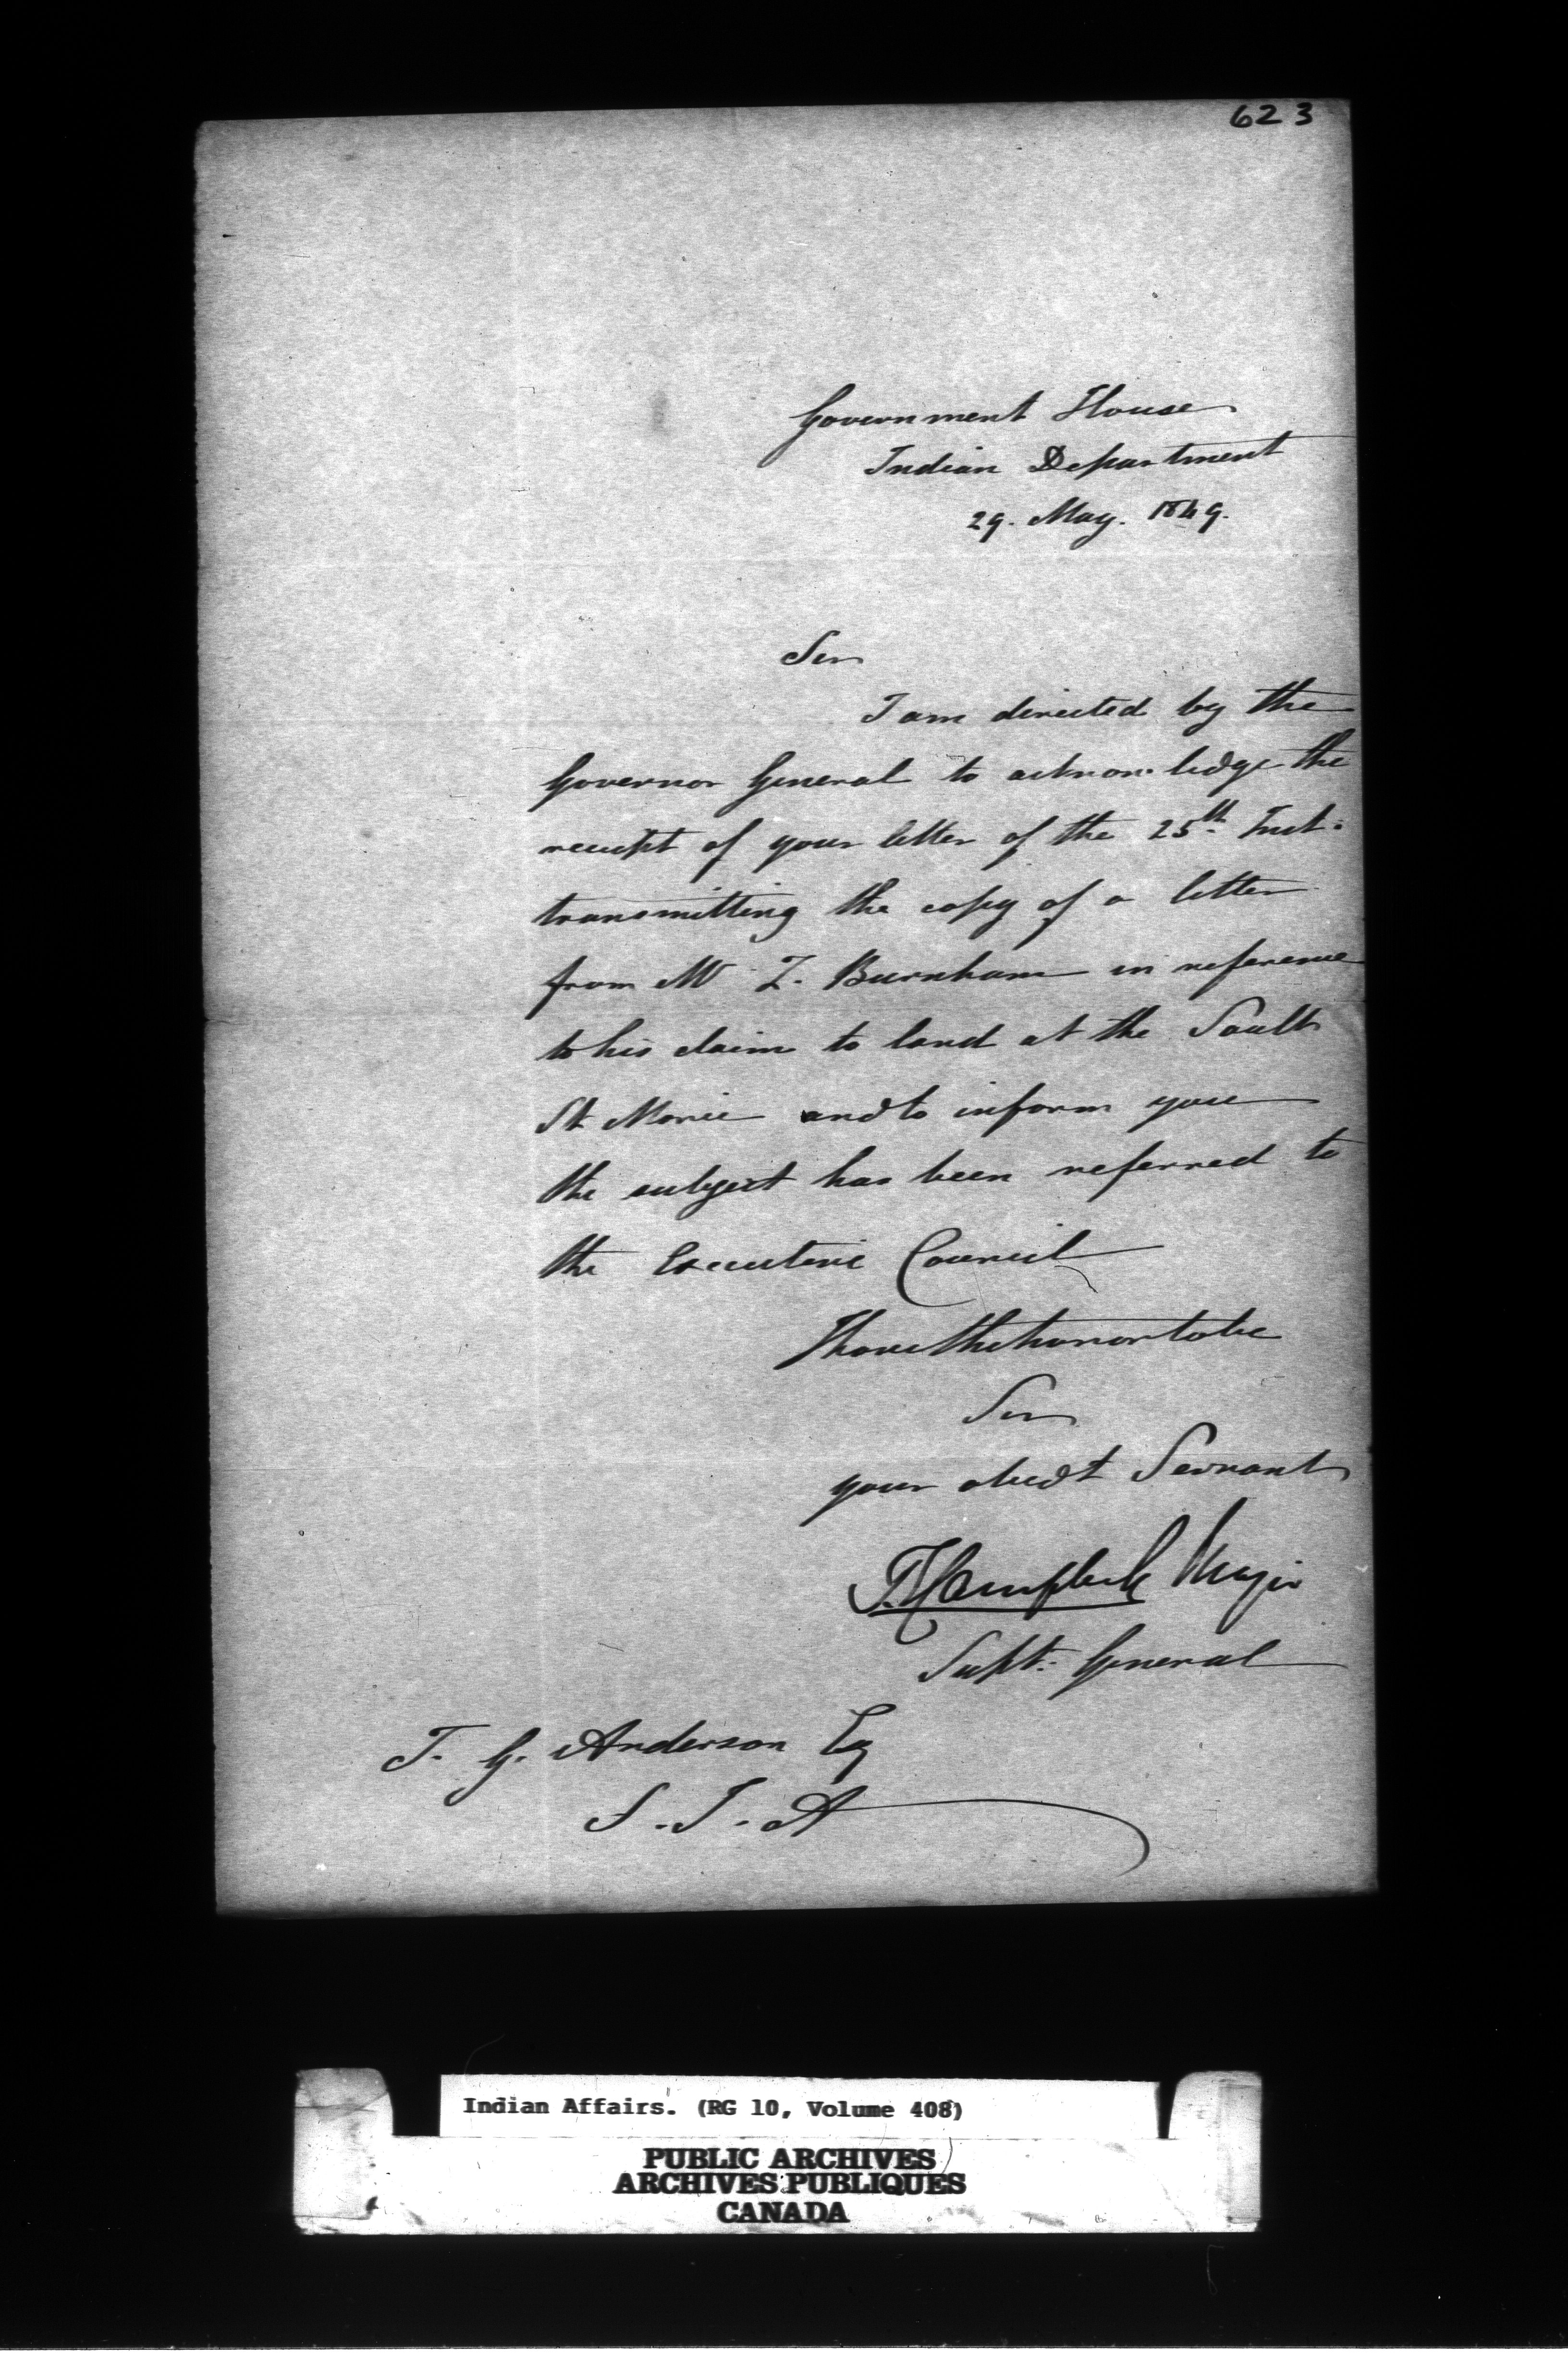 623
Government House
Indian Department
29. May. 1849.
Sir
I am directed by the
Governor General to acknowledge the
receipt of your letter of the 25th Inst:
transmitting the copy of a letter
from Mr Z. Burnham in reference
to his claim to land at the Sault
St Marie and to inform you
the subject has been referred to
the Executive Council
I have the honor to be
Sir
your obedt Servant
T. Campbell Major
Supt: General
T. G. Anderson Esq
S. I. A
Indian Affairs. (RG 10, Volume 408)
PUBLIC ARCHIVES
ARCHIVES PUBLIQUES
CANADA